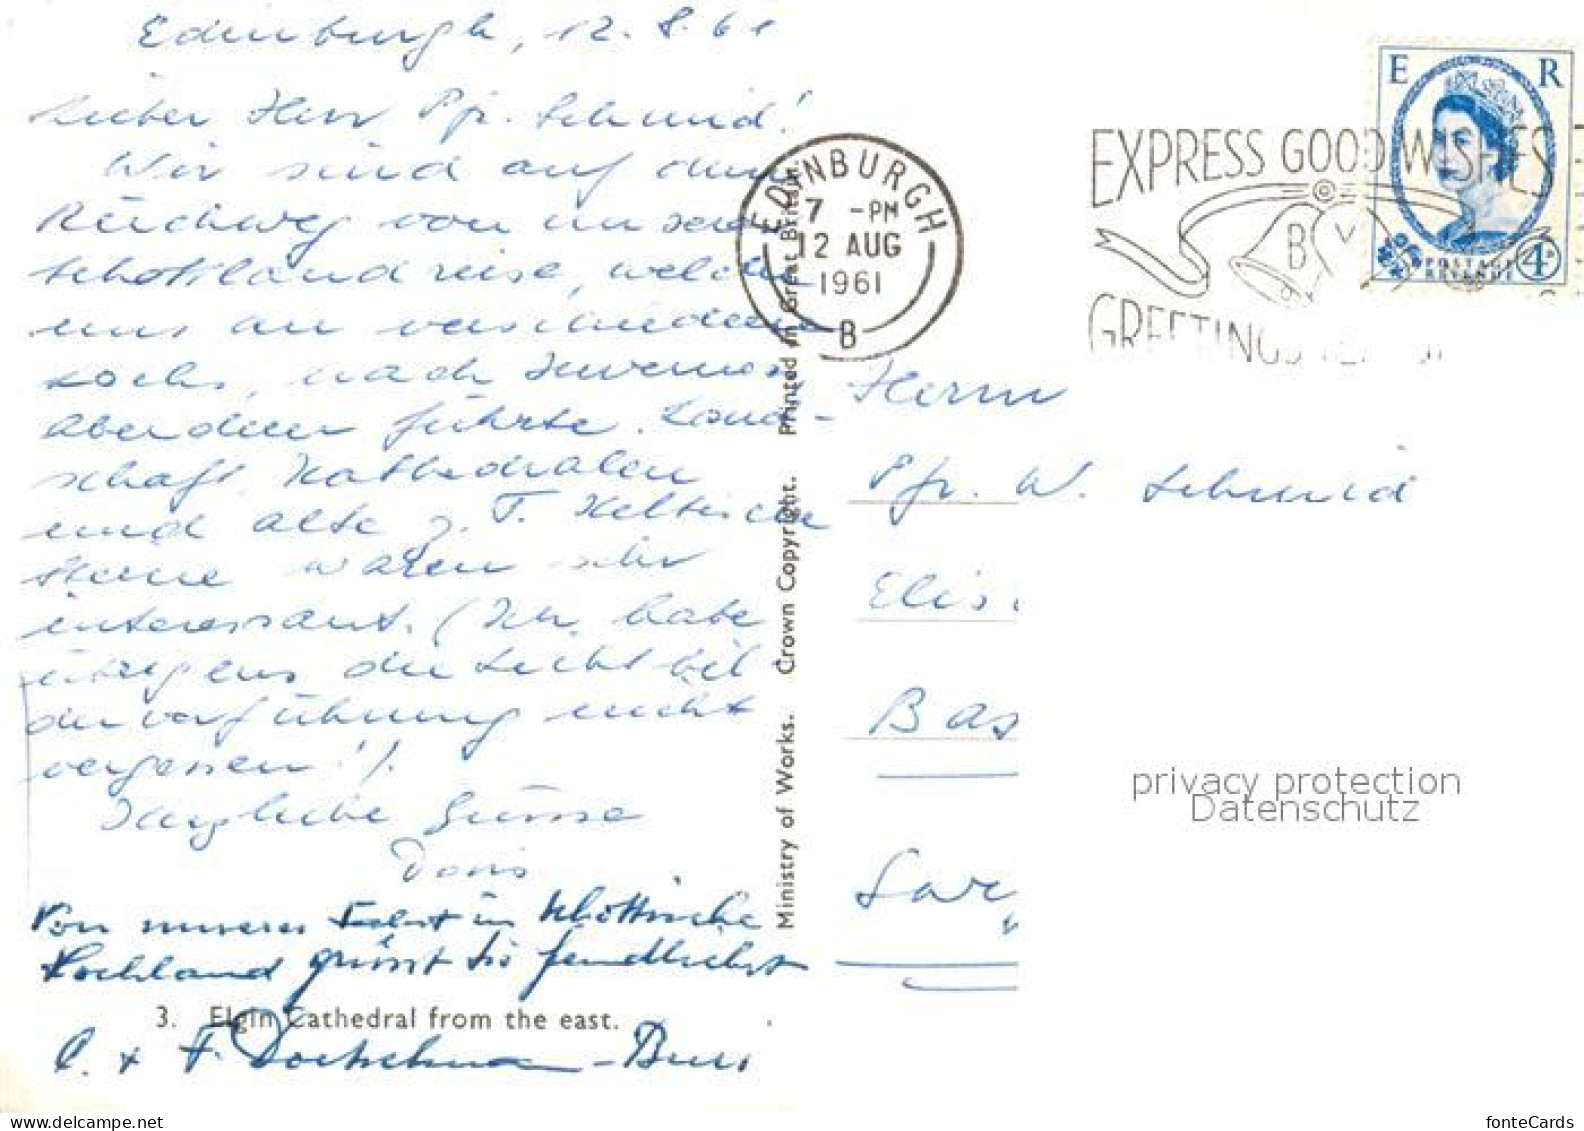 Edinburgh, 12. 8. 61
Lieber Herr Pfr. Schmid!
Wir sind auf dem
Rückweg von unserer
Schottlandreise, welche
uns an verschiedene
Lochs, nach Inverness,
Aberdeen führte. Land-
schaft, Kathedralen
und alte z. T. Keltische
Steine waren sehr
interessant. (Ich habe
übrigens die Lichtbil
dervorführung nicht
vergessen!).
Herzliche Grüsse
Doris
Von unserer Fahrt in Schottische
Hochland grüsst Sie freundlichst
3. Elgin Cathedral from the east.
C. + F.
Ministry of Works. Crown Copyright. Printed in Great Britain.
EDINBURGH
7 -PM
12 AUG
1961
B
EXPRESS GOOD WISHES
BY
GREETINGS
E R
POSTAGE
REVENUE
4D
Herrn
Pfr. W. Schmid
Elis
Bas
privacy protection
Datenschutz
fonteCards